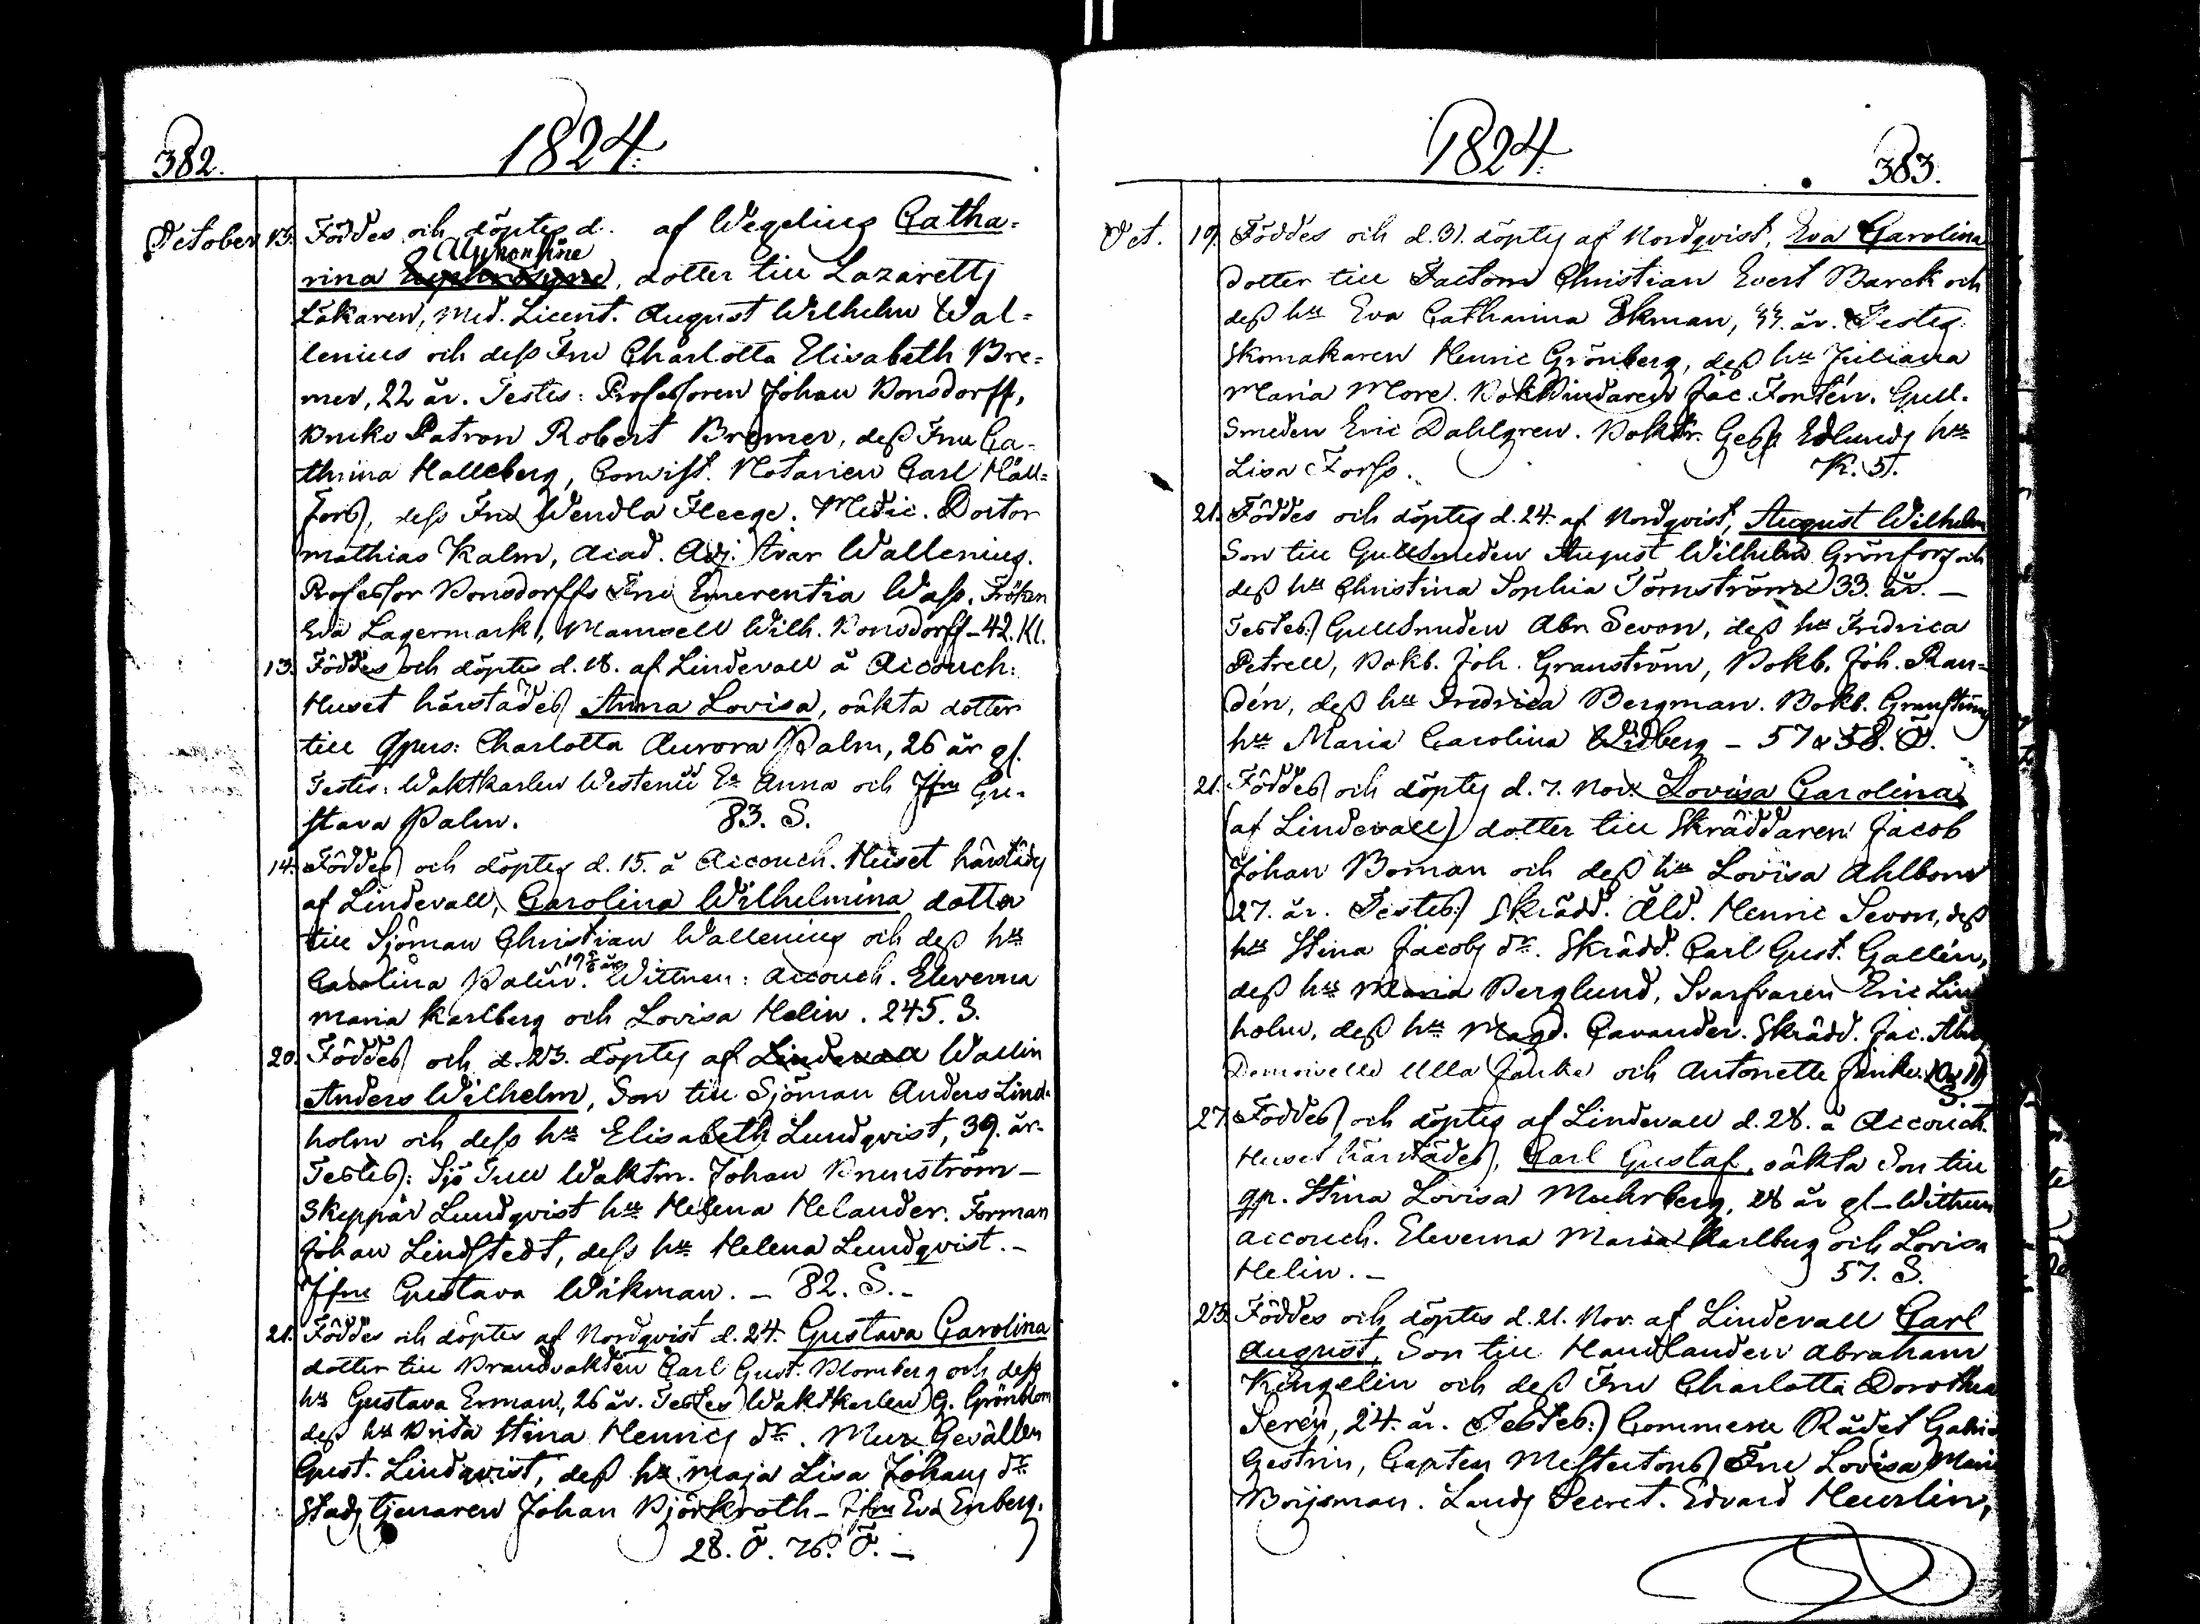 382.
1824.
October 13. Föddes och döptes d. af Wegelius Catha-
Alphonsine
rina Euphrosyne, dotter till Lazaretts
Läkaren, Med. Licent. August Wilhelm Wal-
lenius och dess Fru Charlotta Elisabeth Bre-
mer, 22 år. Testes: Professoren Johan Bonsdorff,
Bruks Patron Robert Bremer, dess Fru Ca-
thrina Halleberg, Consist. Notarien Carl Häll-
fors, dess Fru Wendla Fleege. Medic. Doctor
Mathias Kalm, Acad. Adj. Ivar Wallenius.
Professor Bonsdorffs Fru Emerentia Wass. Fröken
Eva Lagermark, Mamsell Wilh. Bonsdorff - 42. Kl.
13. Föddes och döptes d. 18. af Lindevall å Accouch:
Huset härstädes Anna Lovisa, oäkta dotter
till Qpers: Charlotta Aurora Palm, 26 år gl.
Testes: Waktkarlen Westenii Ea Anna och Jfru Gu-
stava Palm. 83. S.
14. Föddes och döptes d. 15. å Accouch. Huset härstädes
af Lindevall, Carolina Wilhelmina dotter
till Sjöman Christian Wallenius och dess hu
Carolina Palin. Wittnen: Accouch. Eleverna
Maria Karlberg och Lovisa Helin. 245. S.
20. Föddes och d. 23. döptes af Lindevall Wallin
Anders Wilhelm, Son till Sjöman Anders Lind-
holm och dess hu Elisabeth Lundqvist, 39. år.
Testes: Sjö Tull Waktm. Johan Brunström -
Skeppar Lundqvist hu Helena Helander. Forman
Johan Lindstedt, dess hu Helena Lundqvist. -
Jfru Gustava Wikman. - 82. S. -
21. Föddes och döptes af Nordqvist d. 24. Gustava Carolina
dotter till Brandvakten Carl Gust. Blomberg och dess
hu Gustava Erman, 26 år. Testes Waktkarlen G. Grönblom
dess hu Brita Stina Henrics dr. Mur Gesällen
Gust. Lindqvist, dess hu Maja Lisa Johans dr
Stads tjenaren Johan Björkroth - Jfru Eva Enberg.
28. Ö. 76. Ö. -
1824.
383.
Oct. 19. Föddes och d. 31. döptes af Nordqvist, Eva Carolina
dotter till Factorn Christian Evert Barck och
dess hu Eva Catharina Ekman, 44. år. Testes:
Skomakaren Henric Grönberg, dess hu Juliana
Maria More. Bokbindaren Jac. Fontén. Gull-
Smeden Eric Dahlgren. Boktr. Ges. Edlunds hu
Lisa Forss. K. 5.
21. Föddes och döptes d. 24. af Nordqvist, August Wilhelm
Son till Gullsmeden August Wilhelm Grönfors och
dess hu Christina Sophia Törnström 33. år. -
Testes: Gullsmeden Abr. Sevon, dess hu Fredrica
Petrell, Bokb. Joh. Granström, Bokb. Joh. Ran-
dén, dess hu Fredrica Bergman. Bokb. Granströms
hu Maria Carolina Widberg - 57 & 58. Ö.
21. Föddes och döptes d. 7. Nov. Lovisa Carolina
(af Lindevall) dotter till Skräddaren Jacob
Johan Boman och dess hu Lovisa Ahlbom
27. år. Testes: Skrädd. Åld. Henric Sevon, dess
hu Stina Jacobs dr. Skrädd. Carl Gust. Gallén,
dess hu Maria Berglund, Svarfvaren Eric Lin
holm, dess hu Magd. Cavander. Skrädd. Jac.
Demoiselle Ulla Janke och Antonette Janke.
27. Föddes och döptes af Lindevall d. 28. å Accouch.
Huset härstädes, Carl Gustaf, oäkta Son till
qp. Stina Lovisa Muhrberg, 28 år gl - Wittnen
accouch. Eleverna Maria Karlberg och Lovisa
Helin. - 57. S.
23. Föddes och döptes d. 21. Nov. af Lindevall Carl
August, Son till Handlanden Abraham
Kingelin och dess Fru Charlotta Dorothea
Serén, 24. år. Testes: Commerce Rådet Gabri
Gestrin, Capten Mestertons Fru Lovisa Mari
Böijsman. Lands Secret. Edvard Heurlin,